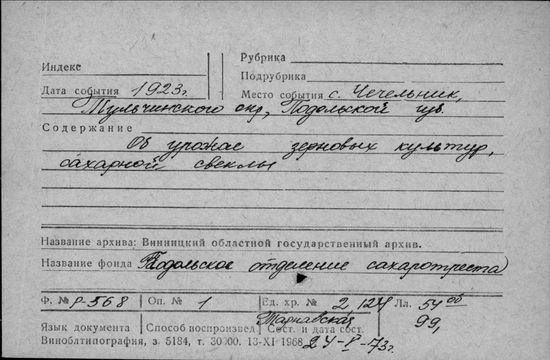 Рубрика
Индекс
Подрубрика
Дата события 1923г. Место события с. Чечельник,
Тульчинского окр, Подольской губ.
Содержание
Об урожае зерновых культур,
сахарной свеклы
Название архива: Винницкий областной государственный архив.
Название фонда Подольское отделение сахаротреста
Ф. № Р-568 Оп. № 1 Ед. хр. № 2, 124 Лл. 54 об
Тарнавская 99,
Язык документа Способ воспроизвед Сост. и дата сост.
Виноблтипография, з. 5184, т. 30000. 13-XI 1968 24-V-73г.